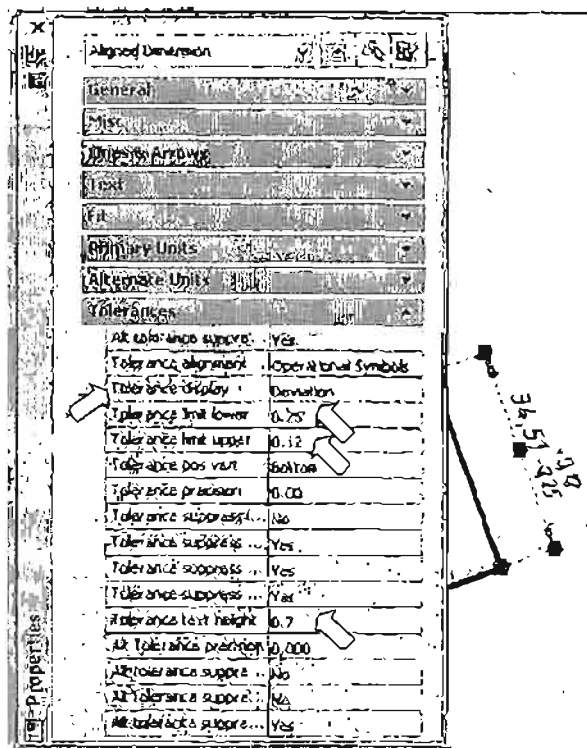 Aligned Dimension
General
Misc
Lines & Arrows
Text
Fit
Primary Units
Alternate Units
Tolerances
Alt tolerance suppre... Yes
Tolerance alignment Operational Symbols
Tolerance display Deviation
Tolerance limit lower 0.25
Tolerance limit upper 0.12
Tolerance pos vert Bottom
Tolerance precision 0.00
Tolerance suppress... No
Tolerance suppress... Yes
Tolerance suppress... Yes
Tolerance suppress... Yes
Tolerance text height 0.7
Alt Tolerance precision 0.000
Alt tolerance suppre... No
Alt Tolerance suppre... No
Alt tolerance suppre... Yes
Properties